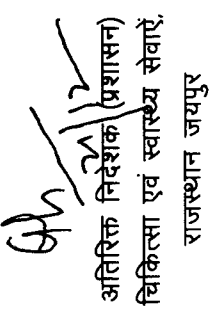 अतिरिक्त निदेशक (प्रशासन)
चिकित्सा एवं स्वास्थ्य सेवाऐं,
राजस्थान जयपुर